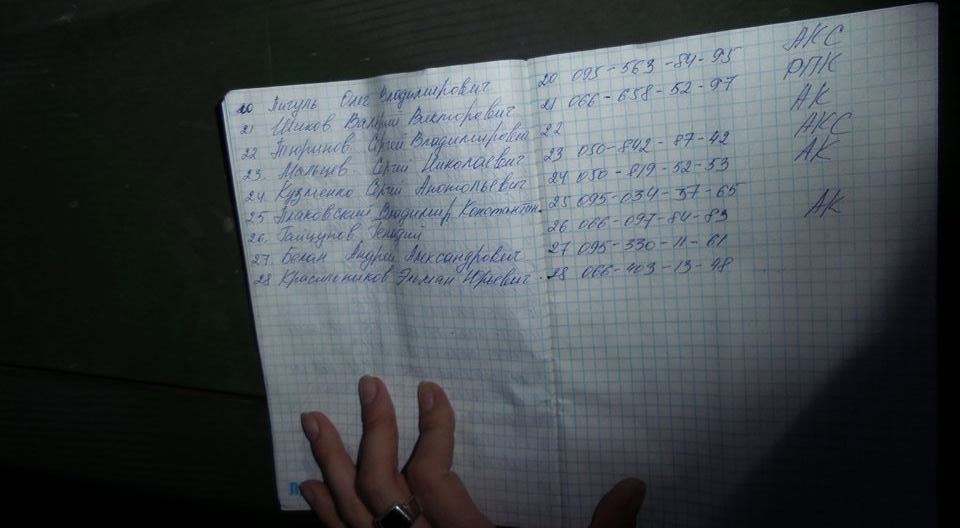 20 Пигуль Олег Владимирович 20 095-563-84-95 АКС
21 Шиков Валерий Викторович 21 066-658-52-97 РПК
22 Тюринов Сергей Владимирович 22 АК
23. Мальцов Сергей Николаевич 23 050-842-87-42 АКС
24 Кузменко Сергей Анотольевич 24 050-819-52-53 АК
25 Владимир Константин. 25 095-034-37-65
26. Гайцунов 26 066-097-84-83 АК
27. Белан Андрей Александрович 27 095-330-11-61
28 Красильников Эльман Юрьевич. 28 066-403-13-48